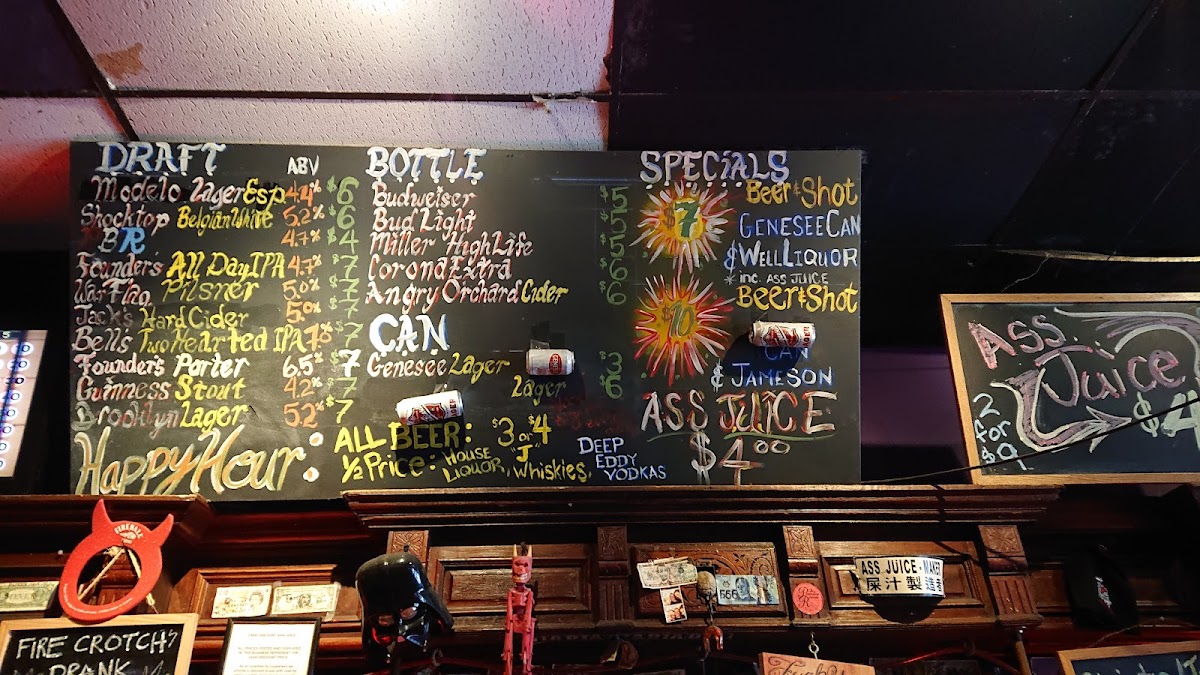 DRAFT ABV
Modelo Lager Esp 4.4% $6
Shocktop Belgian White 5.2% $6
PBR 4.7% $4
Founder's All Day IPA 4.7% $7
War Flag Pilsner 5.0% $7
Jack's Hard Cider 5.0% $7
Bells Two Hearted IPA 7% $7
Founders Porter 6.5% $7
Guinness Stout 4.2% $7
Brooklyn Lager 5.2% $7
BOTTLE
Budweiser $5
Bud Light 5
Miller High Life 5
Corona Extra 6
Angry Orchard Cider 6
CAN
Genesee Lager $3
Lager 6
SPECIALS
$7 Beer & Shot
GENESEE CAN
& WELL LIQUOR
* INC. ASS JUICE
$10 Beer & Shot
CAN
& JAMESON
ASS JUICE
$4.00
Happy Hour:
ALL BEER: $3 or $4
1/2 Price: HOUSE LIQUOR, "J" WHISKIES, DEEP EDDY VODKAS
Ass Juice $4
2 for $9
FIREBALL
FIRE CROTCH?
DRANK
ASS JUICE-MAKER
屎汁製造者
666